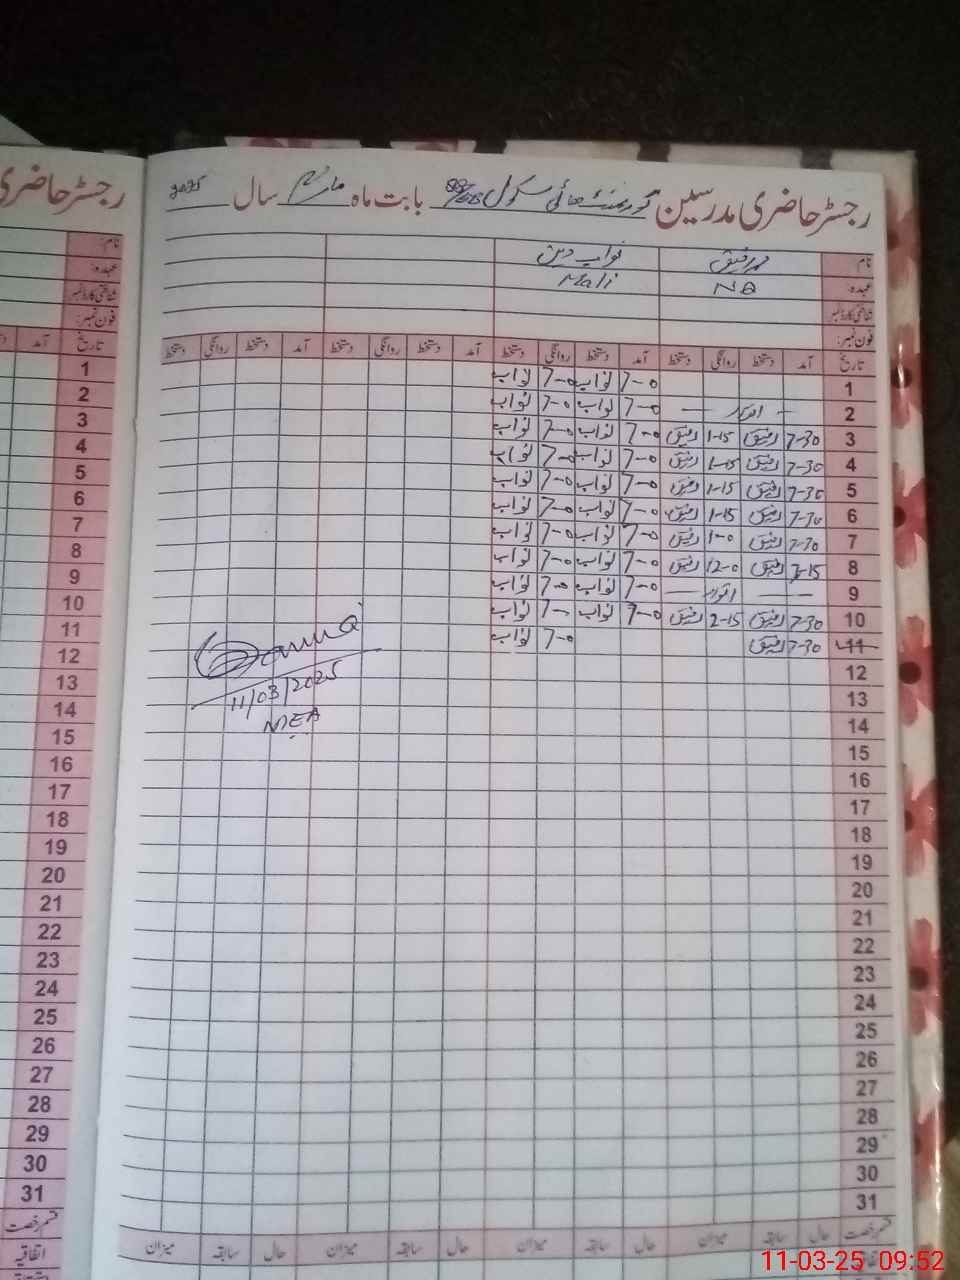 رجسٹر حاضری مدرسین گورنمنٹ ہائی سکول بابت ماہ مارچ سال 2025
رجسٹر حاضری
نام محمد رفیق نواب دین
عہدہ: NQ Mali
شناختی کارڈ نمبر
فون نمبر:
تاریخ آمد دستخط روانگی دستخط آمد دستخط روانگی دستخط آمد دستخط روانگی دستخط آمد دستخط روانگی دستخط
1 7-0 نواب 7-0 نواب
2 — اتوار — 7-0 نواب 7-0 نواب
3 7-30 رفیق 1-15 رفیق 7-0 نواب 7-0 نواب
4 7-30 رفیق 1-15 رفیق 7-0 نواب 7-0 نواب
5 7-30 رفیق 1-15 رفیق 7-0 نواب 7-0 نواب
6 7-30 رفیق 1-15 رفیق 7-0 نواب 7-0 نواب
7 7-30 رفیق 1-0 رفیق 7-0 نواب 7-0 نواب
8 7-15 رفیق 12-0 رفیق 7-0 نواب 7-0 نواب
9 — اتوار — 7-0 نواب 7-0 نواب
10 7-30 رفیق 2-15 رفیق 7-0 نواب 7-0 نواب
11 7-30 رفیق 7-0 نواب
12
13
14
15
16
17
18
19
20
21
22
23
24
25
26
27
28
29
30
31
11/03/2025
MEA
قسم رخصت حال سابقہ میزان حال سابقہ میزان حال سابقہ میزان حال سابقہ میزان
نام:
عہدہ:
شناختی کارڈ نمبر
فون نمبر:
تاریخ آمد
1
2
3
4
5
6
7
8
9
10
11
12
13
14
15
16
17
18
19
20
21
22
23
24
25
26
27
28
29
30
31
قسم رخصت
اتفاقیہ
11-03-25 09:52